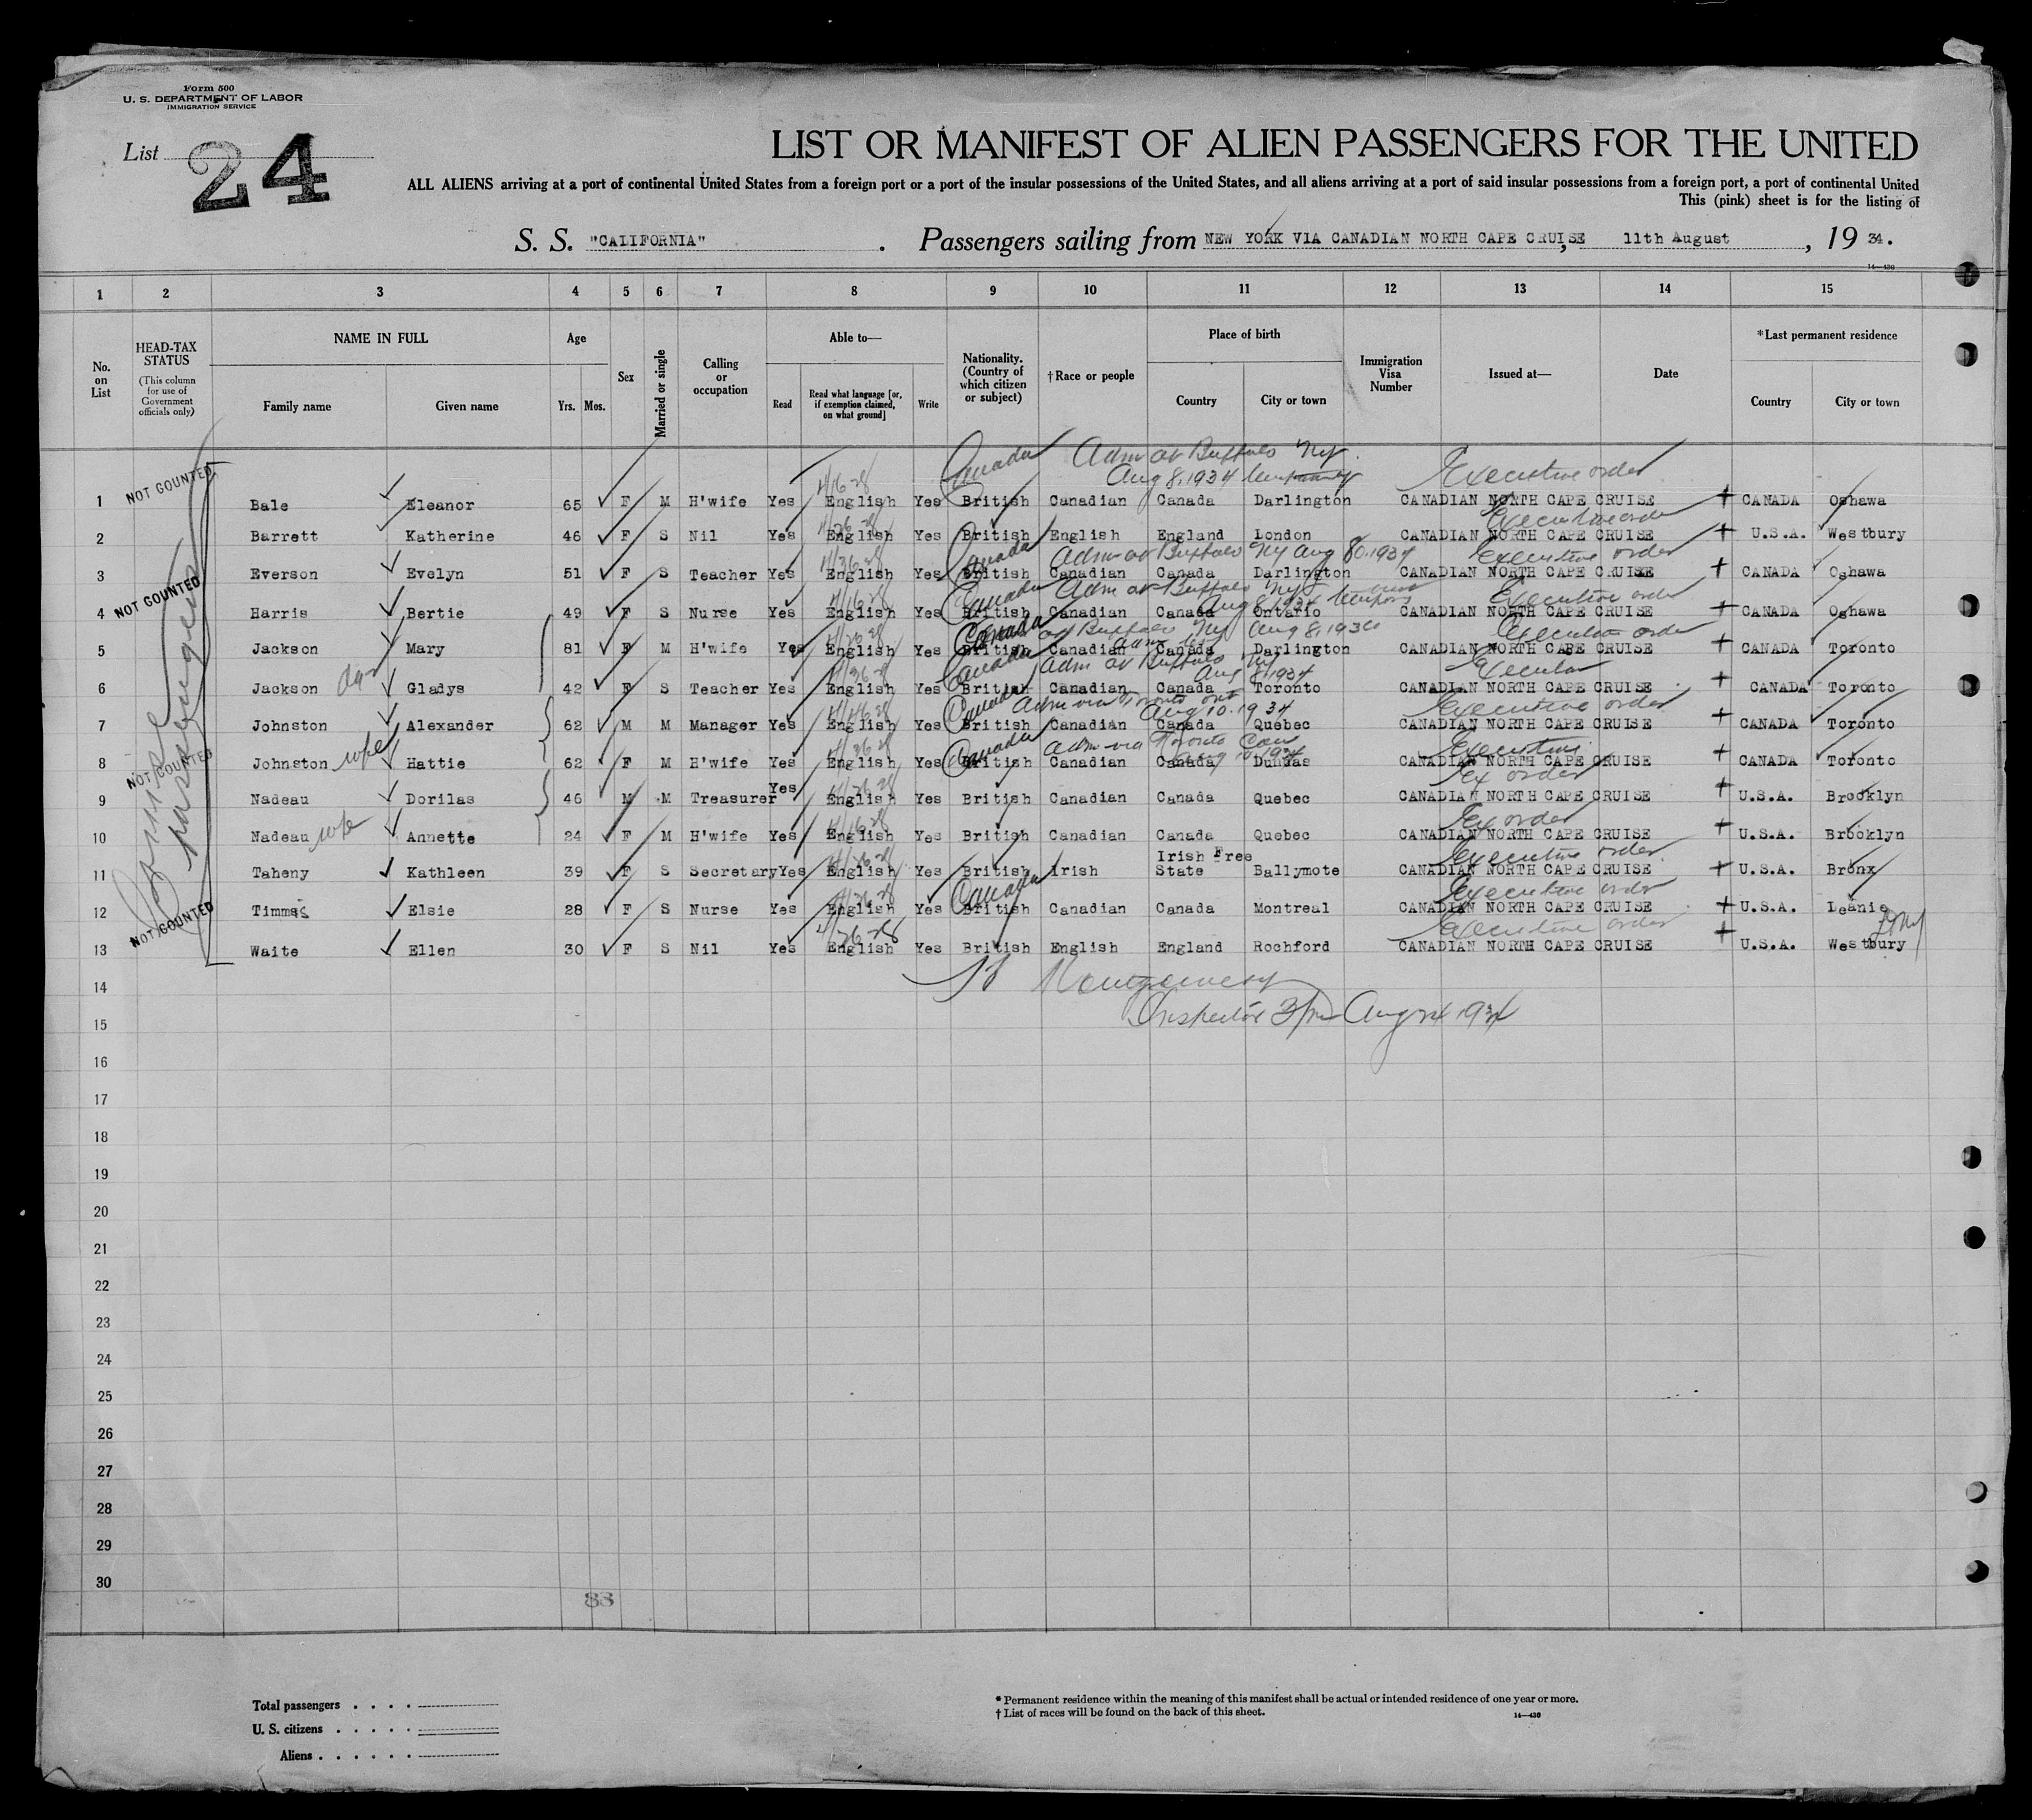 Form 500
U. S. DEPARTMENT OF LABOR
IMMIGRATION SERVICE
List 24
LIST OR MANIFEST OF ALIEN PASSENGERS FOR THE UNITED
ALL ALIENS arriving at a port of continental United States from a foreign port or a port of the insular possessions of the United States, and all aliens arriving at a port of said insular possessions from a foreign port, a port of continental United
This (pink) sheet is for the listing of
S. S. "CALIFORNIA". Passengers sailing from NEW YORK VIA CANADIAN NORTH CAPE CRUISE, 11th August, 19 34.
14—430
1 2 3 4 5 6 7 8 9 10 11 12 13 14 15
No. on List
HEAD-TAX STATUS (This column for use of Government officials only)
NAME IN FULL Family name Given name
Age Yrs. Mos.
Sex
Married or single
Calling or occupation
Able to— Read Read what language [or, if exemption claimed, on what ground] Write
Nationality. (Country of which citizen or subject)
†Race or people
Place of birth Country City or town
Immigration Visa Number
Issued at—
Date
*Last permanent residence Country City or town
Canada Adm at Buffalo NY. Executive order
NOT COUNTED Aug 8, 1934
1 Bale Eleanor 65 F M H'wife Yes English Yes British Canadian Canada Darlington CANADIAN NORTH CAPE CRUISE CANADA Oshawa
Executive order
2 Barrett Katherine 46 F S Nil Yes English Yes British English England London CANADIAN NORTH CAPE CRUISE U.S.A. Westbury
Canada Adm at Buffalo NY Aug 8, 1934 Executive order
3 Everson Evelyn 51 F S Teacher Yes English Yes British Canadian Canada Darlington CANADIAN NORTH CAPE CRUISE CANADA Oshawa
NOT COUNTED Canada Adm at Buffalo NY Aug 8, 1934 Executive order
4 Harris Bertie 49 F S Nurse Yes English Yes British Canadian Canada Ontario CANADIAN NORTH CAPE CRUISE CANADA Oshawa
Canada at Buffalo NY Aug 8, 1934 Executive order
5 Jackson Mary 81 F M H'wife Yes English Yes British Canadian Canada Darlington CANADIAN NORTH CAPE CRUISE CANADA Toronto
Canada Adm at Buffalo NY Aug 8, 1934
6 Jackson Gladys 42 F S Teacher Yes English Yes British Canadian Canada Toronto CANADIAN NORTH CAPE CRUISE CANADA Toronto
Canada Adm via Toronto Ont Aug 10, 1934 Executive order
7 Johnston Alexander 62 M M Manager Yes English Yes British Canadian Canada Quebec CANADIAN NORTH CAPE CRUISE CANADA Toronto
NOT COUNTED Canada Adm via Toronto Can Executive
8 Johnston wife Hattie 62 F M H'wife Yes English Yes British Canadian Canada Dundas CANADIAN NORTH CAPE CRUISE CANADA Toronto
Ex order
9 Nadeau Dorilas 46 M M Treasurer Yes English Yes British Canadian Canada Quebec CANADIAN NORTH CAPE CRUISE U.S.A. Brooklyn
Ex order
10 Nadeau wife Annette 24 F M H'wife Yes English Yes British Canadian Canada Quebec CANADIAN NORTH CAPE CRUISE U.S.A. Brooklyn
Executive order
11 Taheny Kathleen 39 F S Secretary Yes English Yes British Irish Irish Free State Ballymote CANADIAN NORTH CAPE CRUISE U.S.A. Bronx
Canada Executive order
12 Timms Elsie 28 F S Nurse Yes English Yes British Canadian Canada Montreal CANADIAN NORTH CAPE CRUISE U.S.A.
NOT COUNTED Executive order
13 Waite Ellen 30 F S Nil Yes English Yes British English England Rochford CANADIAN NORTH CAPE CRUISE U.S.A. Westbury
Cruise passengers
14 Montgomery
15 Inspector Aug 24 1934
16
17
18
19
20
21
22
23
24
25
26
27
28
29
30
83
Total passengers
U. S. citizens
Aliens
* Permanent residence within the meaning of this manifest shall be actual or intended residence of one year or more.
† List of races will be found on the back of this sheet.
14—430